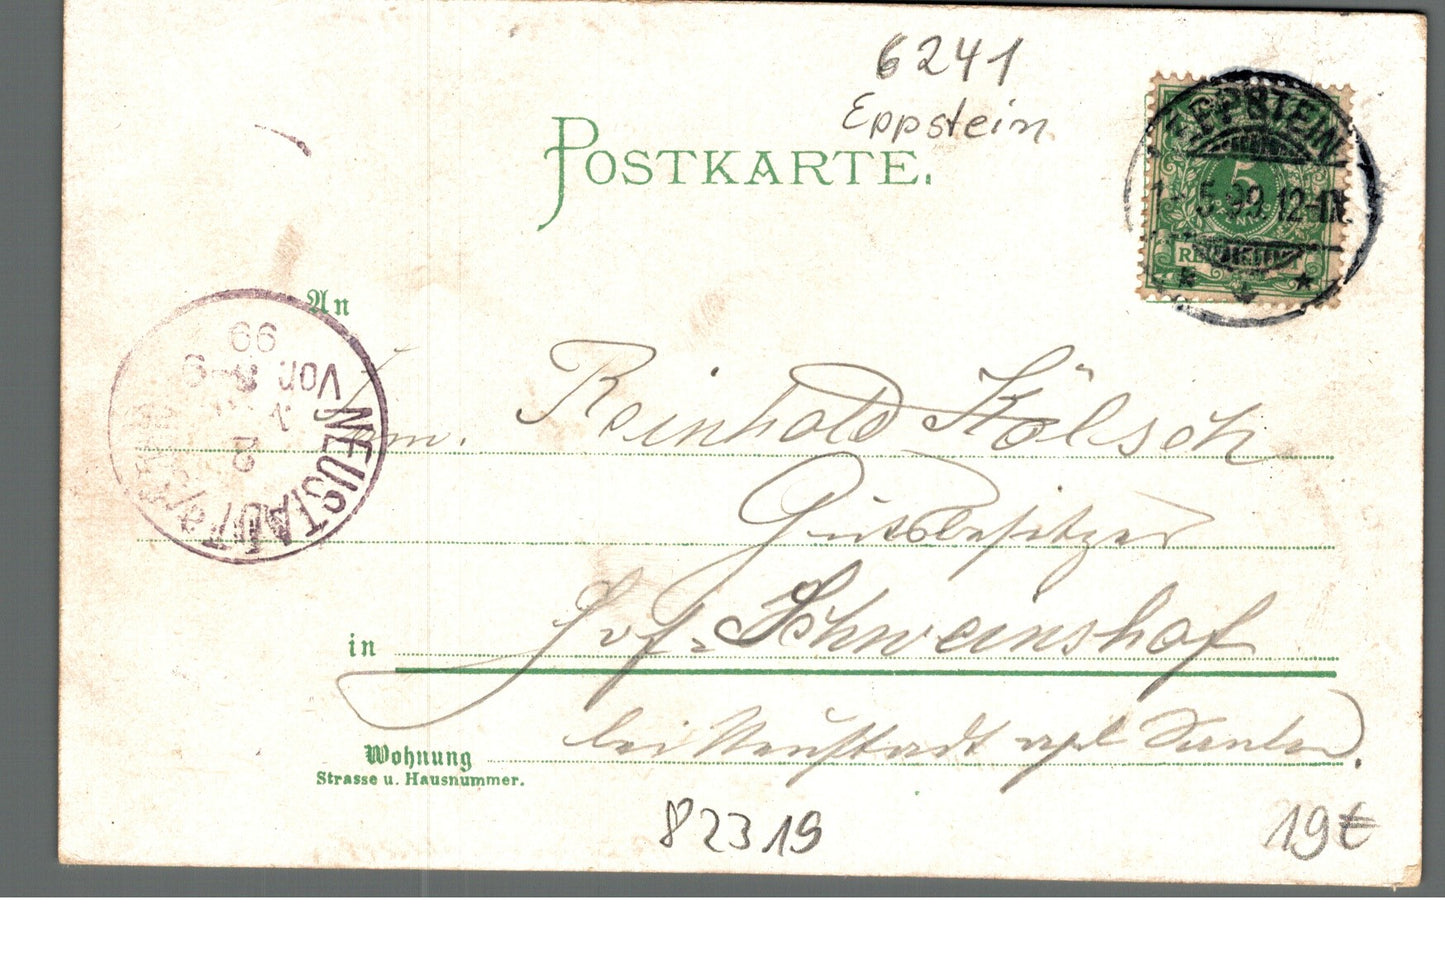 6241
Eppstein
POSTKARTE.
EPPSTEIN
5 99 12-1N.
5
REICHSPOST
An
NEUSTADT
2
1
Vor. 8-9
99
Reinhold Kölsch
Gutsbesitzer
in
Hof Schweinshof
bei Neustadt
Wohnung
Strasse u. Hausnummer.
82319
19€